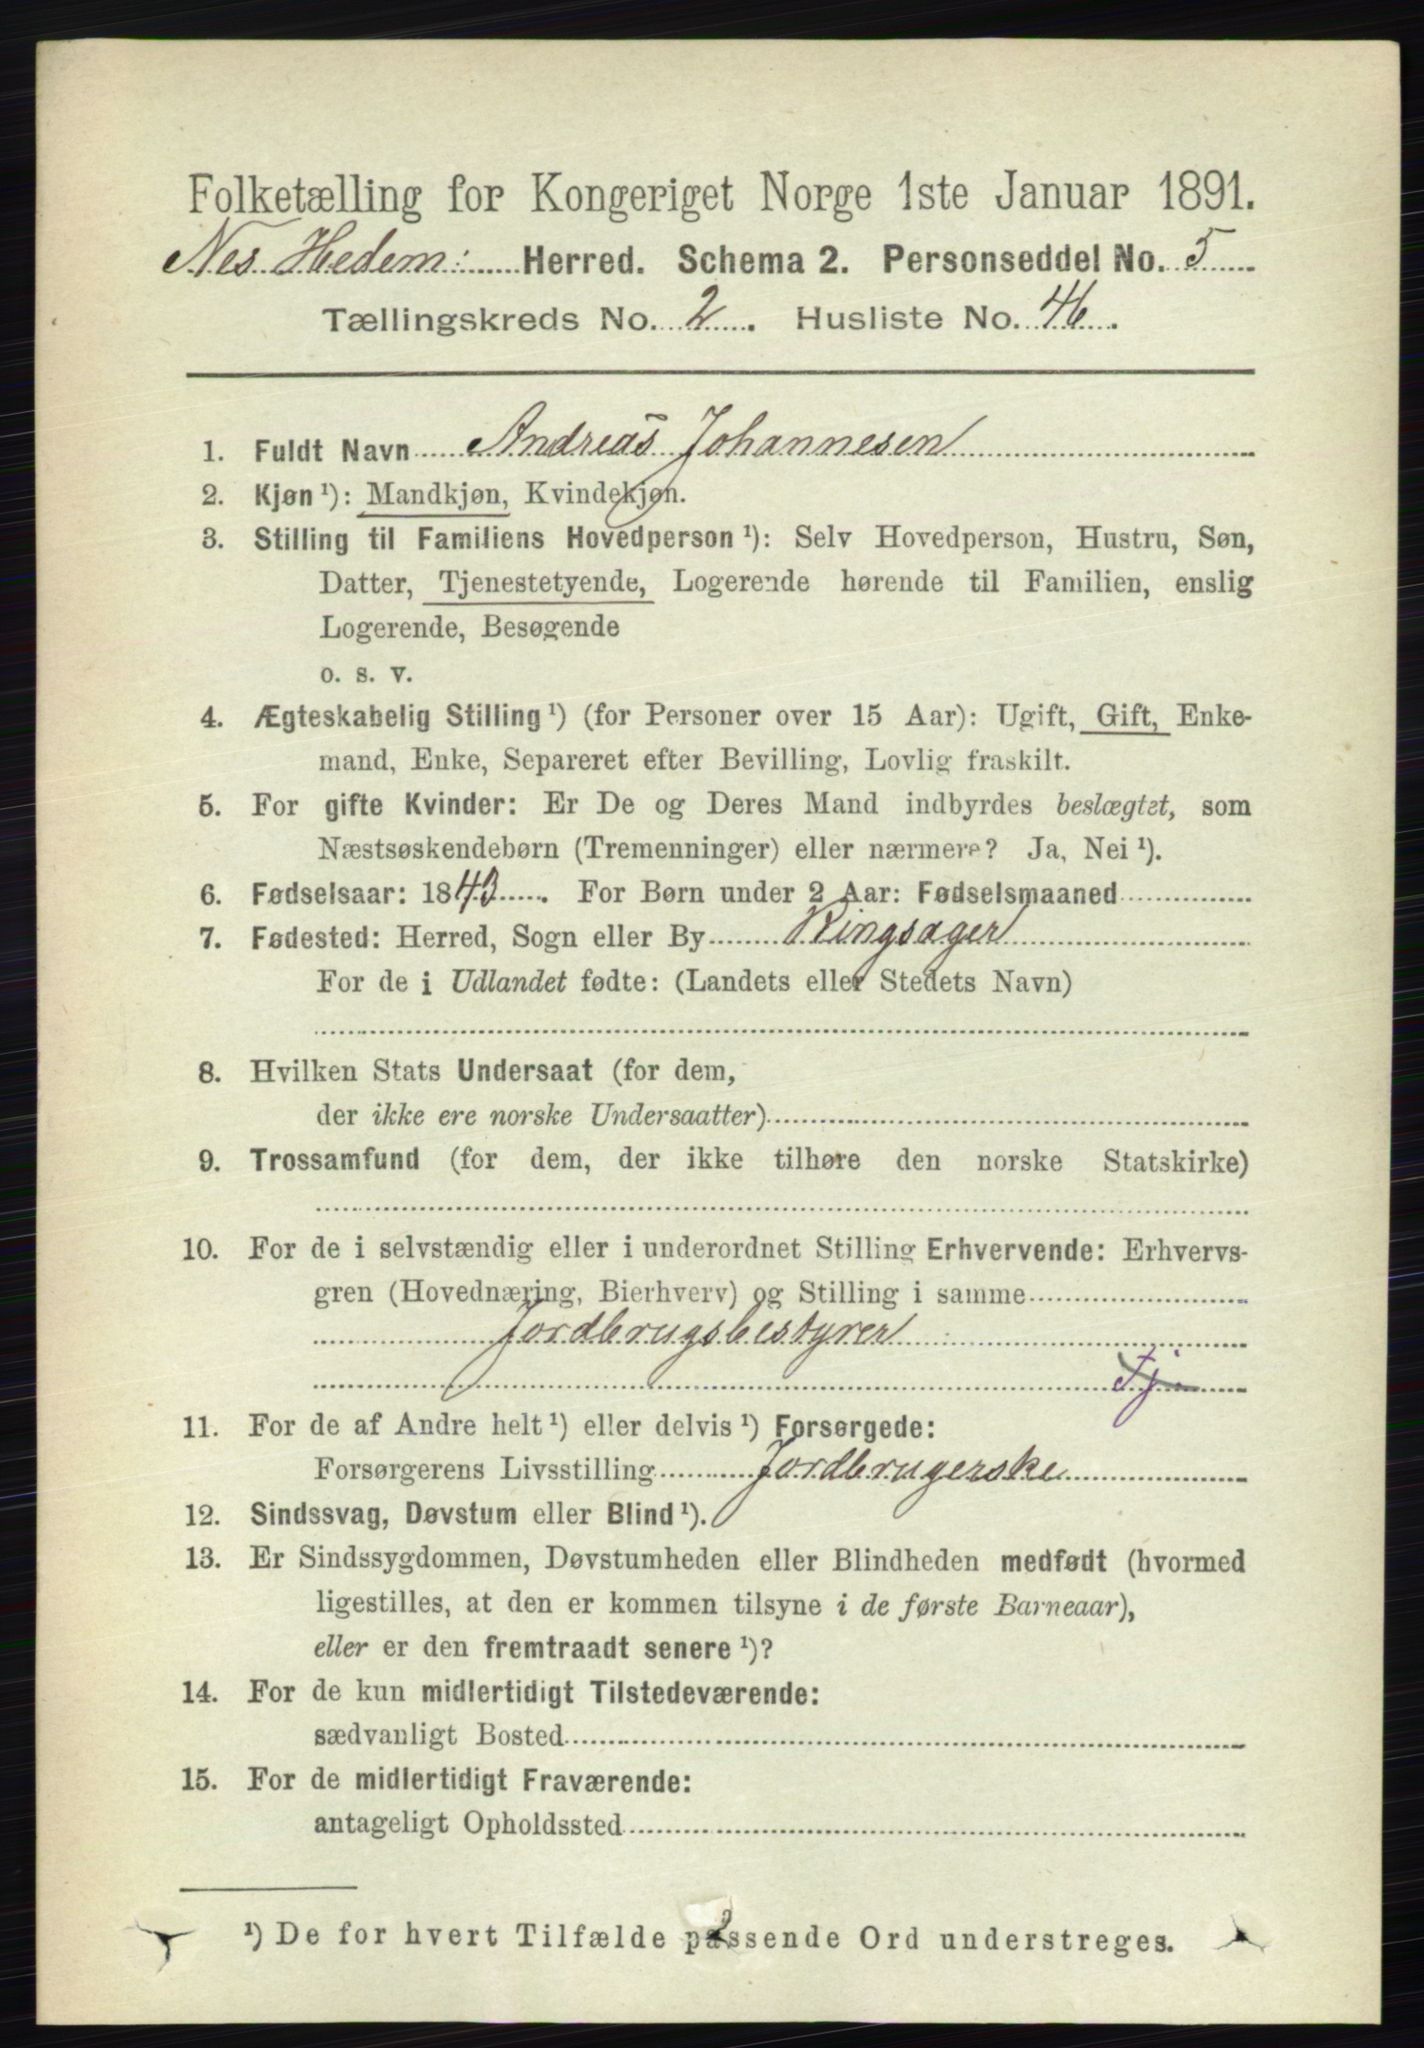 Folketælling for Kongeriget Norge 1ste Januar 1891.
Nes Hedem: Herred. Schema 2. Personseddel No. 5
Tællingskreds No. 2. Husliste No. 46.
1. Fuldt Navn Andreas Johannesen
2. Kjøn ¹): Mandkjøn, Kvindekjøn.
3. Stilling til Familiens Hovedperson ¹): Selv Hovedperson, Hustru, Søn,
Datter, Tjenestetyende, Logerende hørende til Familien, enslig
Logerende, Besøgende
o. s. v.
4. Ægteskabelig Stilling ¹) (for Personer over 15 Aar): Ugift, Gift, Enke-
mand, Enke, Separeret efter Bevilling, Lovlig fraskilt.
5. For gifte Kvinder: Er De og Deres Mand indbyrdes beslægtet, som
Næstsøskendebørn (Tremenninger) eller nærmere? Ja, Nei ¹).
6. Fødselsaar: 1843. For Børn under 2 Aar: Fødselsmaaned
7. Fødested: Herred, Sogn eller By Ringsager
For de i Udlandet fødte: (Landets eller Stedets Navn)
8. Hvilken Stats Undersaat (for dem,
der ikke ere norske Undersaatter)
9. Trossamfund (for dem, der ikke tilhøre den norske Statskirke)
10. For de i selvstændig eller i underordnet Stilling Erhvervende: Erhvervs-
gren (Hovednæring, Bierhverv) og Stilling i samme
Jordbrugsbestyrer
tj
11. For de af Andre helt ¹) eller delvis ¹) Forsørgede:
Forsørgerens Livsstilling Jordbrugerske
12. Sindssvag, Døvstum eller Blind ¹).
13. Er Sindssygdommen, Døvstumheden eller Blindheden medfødt (hvormed
ligestilles, at den er kommen tilsyne i de første Barneaar),
eller er den fremtraadt senere ¹)?
14. For de kun midlertidigt Tilstedeværende:
sædvanligt Bosted
15. For de midlertidigt Fraværende:
antageligt Opholdssted
¹) De for hvert Tilfælde passende Ord understreges.